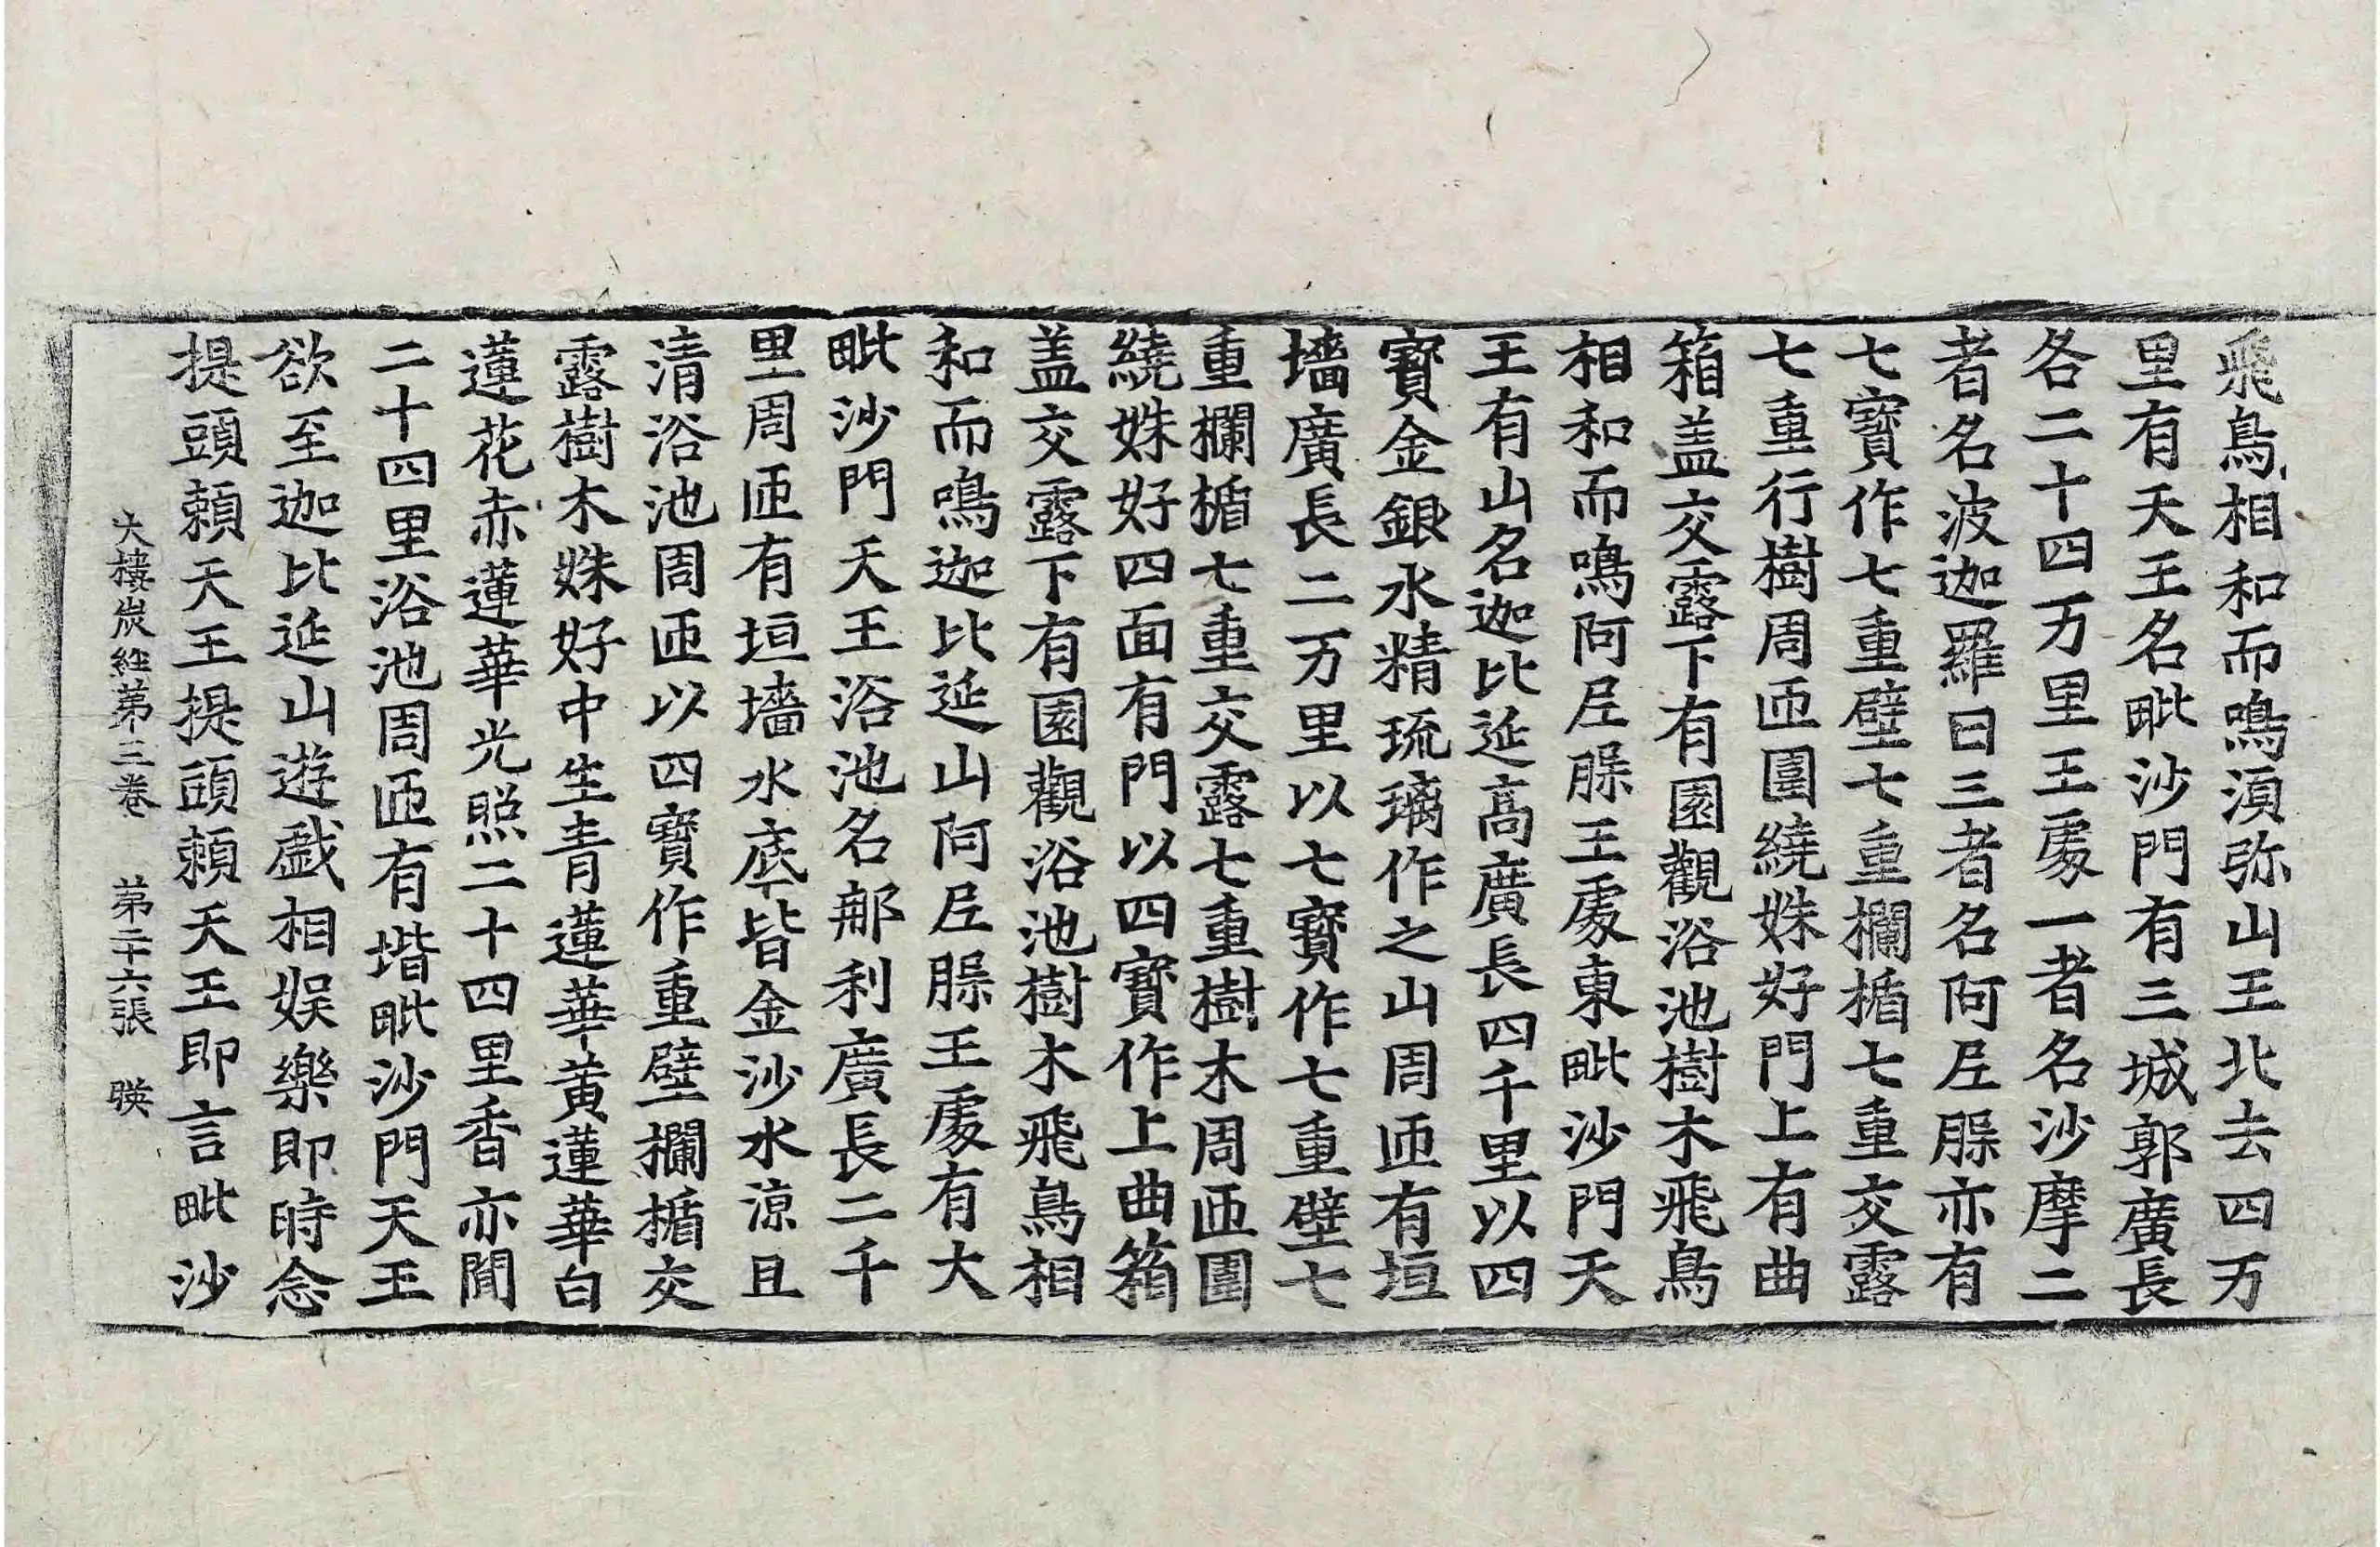 飛鳥相和而鳴湏弥山王北去四万
里有天王名毗沙門有三城郭廣長
各二十四万里王處一者名沙摩二
者名波迦羅曰三者名阿𡰱䐗亦有
七寶作七重壁七重欄楯七重交露
七重行樹周匝圍繞姝好門上有曲
箱盖交露下有園觀浴池樹木飛鳥
相和而鳴阿𡰱䐗王處東毗沙門天
王有山名迦比延高廣長四千里以四
寶金銀水精琉璃作之山周匝有垣
墻廣長二万里以七寶作七重壁七
重欄楯七重交露七重樹木周匝圍
繞姝好四面有門以四寶作上曲箱
盖交露下有園觀浴池樹木飛鳥相
和而鳴迦比延山阿𡰱䐗王處有大
毗沙門天王浴池名那利廣長二千
里周匝有垣墻水底皆金沙水涼且
清浴池周匝以四寶作重壁欄楯交
露樹木姝好中生青蓮華黄蓮華白
蓮花赤蓮華光照二十四里香亦聞
二十四里浴池周匝有堦毗沙門天王
欲至迦比延山遊戲相娱樂即時念
提頭賴天王提頭賴天王即言毗沙
大樓炭經第三卷 第二十六張 㬸